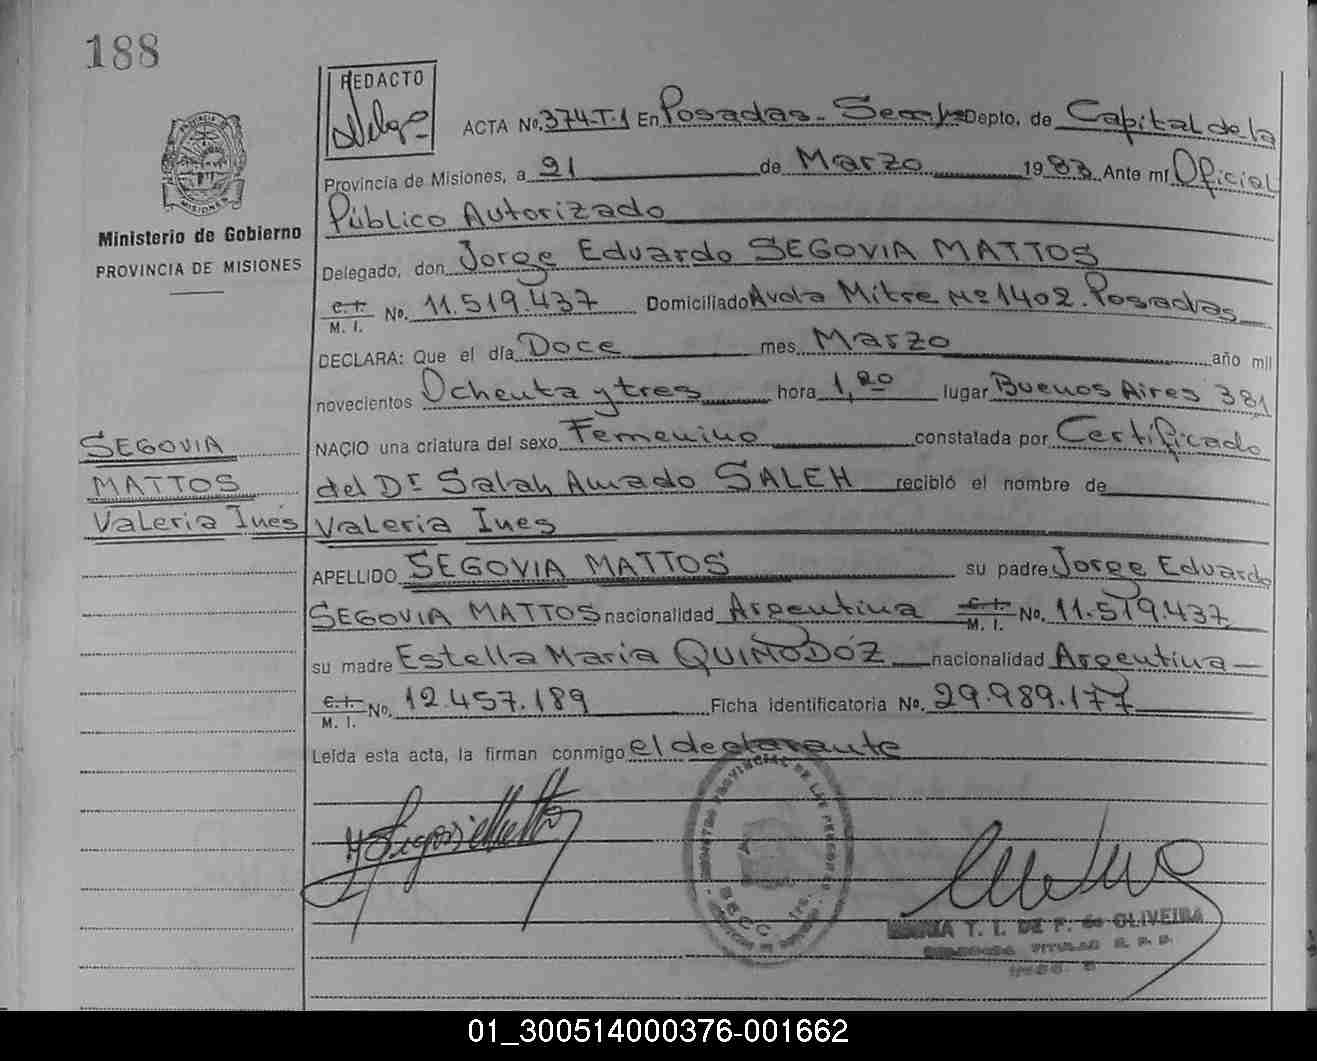 188
REDACTO
ACTA No. 374-T-1 En Posadas - Secc. 1ª Depto. de Capital de la
Provincia de Misiones, a 21 de Marzo 1983 Ante mí Oficial
Público Autorizado
Ministerio de Gobierno
PROVINCIA DE MISIONES
Delegado, don Jorge Eduardo SEGOVIA MATTOS
C. I. M. I. No. 11.519.437 Domiciliado Avda Mitre Nº 1402. Posadas
DECLARA: Que el día Doce mes Marzo año mil
novecientos Ochenta y tres hora 1,20 lugar Buenos Aires 381
NACIO una criatura del sexo Femenino constatada por Certificado
SEGOVIA
MATTOS
Valeria Inés
del Dr Salah Amado SALEH recibió el nombre de
Valeria Ines
APELLIDO SEGOVIA MATTOS su padre Jorge Eduardo
SEGOVIA MATTOS nacionalidad Argentina C. I. M. I. No. 11.519.437
su madre Estella Maria QUIMODÓZ nacionalidad Argentina
C. I. M. I. No. 12.457.189 Ficha identificatoria No. 29.989.177
Leída esta acta, la firman conmigo el declarante
MARIA T. I. DE P. de OLIVEIRA
TITULAR
01_300514000376-001662